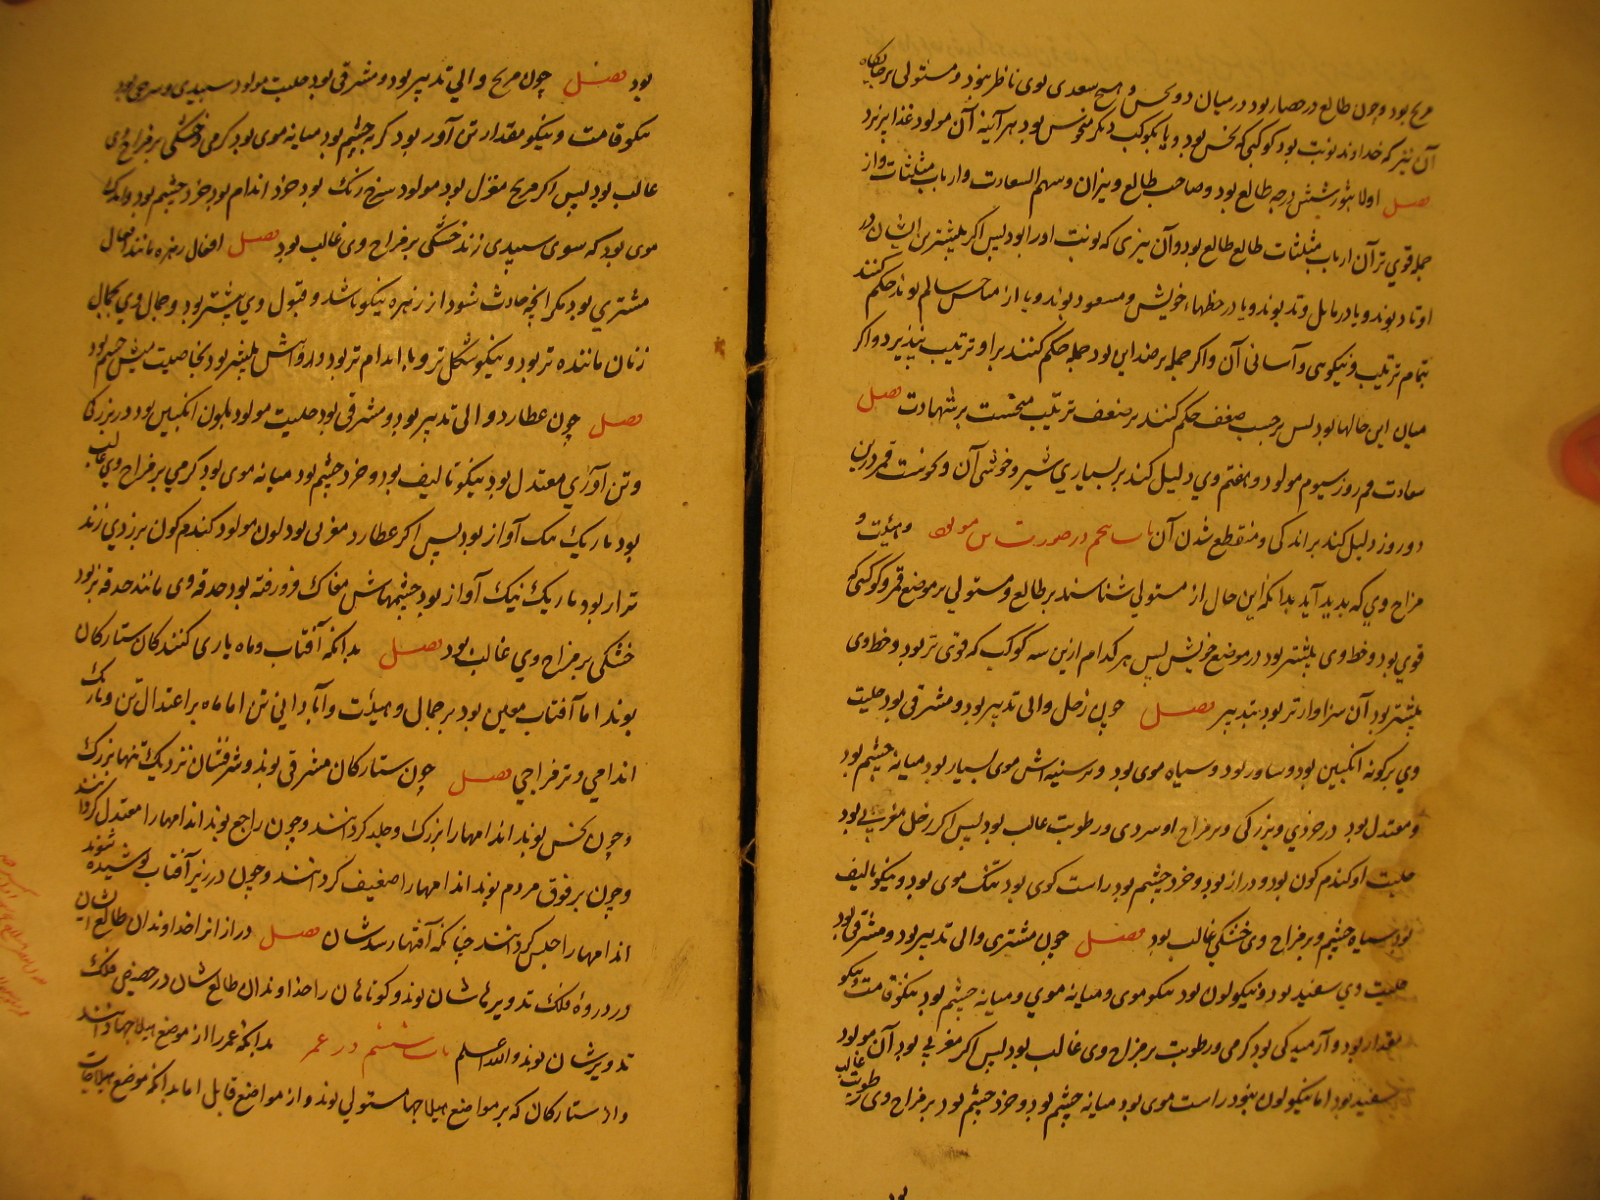 مریخ بود و چون طالع در حصار بود در میان دو نحس و هیچ سعدی بوی ناظر نبود و مستولی بر جایگاه
آن نیز که خداوند نوبت بود کوکبی که نحس بود و یا بکوکب دیگر منحوس بود هر آینه آن مولود غذا پذیرد
فصل اولا درجه طالع بود و صاحب طالع و نیزان و سهم السعادت و ارباب مثلثات و از
جمله قوی تر آن ارباب مثلثات طالع طالع بود و آن نیزی که نوبت او را بود پس اگر بیشترین ایشان در
اوتاد بوند و یا در مایل وتد بوند و یا در حظها خویش و مسعود بوند و یا از مناحس سالم بوند حکم کنند
بتمام تربیت و نیکویی و آسانی آن و اگر جمله بر ضد این بود جمله حکم کنند بر او تربیت نپذیرد و اگر
میان این حالها بود پس بر حسب ضعف حکم کنند بر ضعف تربیت بر شهادت فصل
سعادت قمر روز سیوم مولود و هفتم وی دلیل کند بر بسیاری شیر و خوشی آن و نحوست قمر درین
دو روز دلیل کند بر اندکی و منقطع شدن آن باب پنجم در صورت مولود و هیئت و
مزاج وی که پدید آید بدانکه این حال از مستولی شناسند بر طالع و مستولی بر موضع قمر و کوکبی که
قوی بود و حظ وی بیشتر بود در موضع خویش پس هر کدام ازین سه کوکب که قوی تر بود و حظ وی
بیشتر بود آن سزاوارتر بود بتدبیر فصل چون زحل والی تدبیر بود و مشرقی بود حلیت
وی بر گونه انگبین بود و بود و سیاه موی بود و بر سینه اش موی بسیار بود میانه چشم بود
و معتدل بود در خردی و بزرگی و بر مزاج او سردی و رطوبت غالب بود پس اگر زحل مغربی بود
حلیت او گندم گون بود و دراز بود و خرد چشم بود راست موی بود تنک موی بود و نیکو تالیف
بود سیاه چشم و بر مزاج وی خشکی غالب بود فصل چون مشتری والی تدبیر بود و مشرقی بود
حلیت وی سفید بود و نیکو لون بود نیکو موی و میانه موی و میانه چشم بود نیکو قامت و نیکو
مقدار بود و آرمیدگی بود گرمی و رطوبت بر مزاج وی غالب بود پس اگر مغربی بود آن مولود
سفید بود اما نیکو لون نبود راست موی بود میانه چشم بود و خرد چشم بود بر مزاج وی رطوبت غالب
بود
بود فصل چون مریخ والی تدبیر بود و مشرقی بود حلیت مولود سپیدی و سرخی بود
نیکو قامت و نیکو مقدار تن آور بود گربه چشم بود میانه موی بود گرمی و خشکی بر مزاج وی
غالب بود پس اگر مریخ مغربی بود مولود سرخ رنگ بود خرد اندام بود خرد چشم بود و اندک
موی بود که سوی سپیدی زند خشکی بر مزاج وی غالب بود فصل افعال زهره مانند افعال
مشتری بود مگر انچه حادث شود از زهره نیکو باشد و قبول وی بیشتر بود و جمال وی بجمال
زنان ماننده تر بود و نیکو شکل تر و با اندام تر بود بود بخاصیت میش چشم بود
فصل چون عطارد والی تدبیر بود و مشرقی بود حلیت مولود بلون انگبین بود در بزرگی
و تن آوری معتدل بود نیکو تالیف بود و خرد چشم بود میانه موی بود گرمی بر مزاج وی غالب
بود باریک نیک آواز بود پس اگر عطارد مغربی بود لون مولود گندم گون بزردی زند
نزار بود باریک نیک آواز بود چشمهاش مغاک فرو رفته بود حدقه وی مانند حدقه بز بود
خشکی بر مزاج وی غالب بود فصل بدانکه آفتاب و ماه یاری کنندگان ستارگان
بوند اما آفتاب معین بود بر جمال و هیئت و آبادانی تن اما ماه بر اعتدال تن و نازک
اندامی و تر مزاجی فصل چون ستارگان مشرقی بوند و شرفشان نزدیک تنها بزرگ
و چون نحس بوند اندامها را بزرگ و جلد گردانند و چون راجع بوند اندامها را معتدل گردانند
و چون بر فوق مردم بوند اندامها را ضعیف گردانند و چون در زیر آفتاب پوشیده شوند
اندامها را گردانند چنانکه آفتها رسدشان فصل درازانرا خداوندان طالع ایشان
در دروه فلک تدویرهاشان بوند و کوتاهان را خداوندان طالع شان در حضیض فلک
تدویرشان بوند والله اعلم باب ششم در عمر بدانکه عمر را از موضع هیلاجها دانند
و از ستارگان که بر مواضع هیلاجها مستولی بوند و از مواضع قابل اما بدانکه موضع هیلاجات